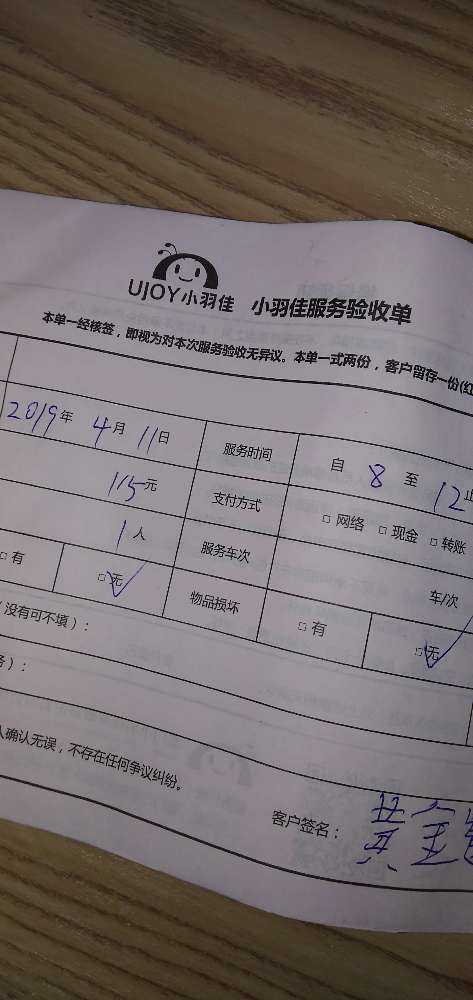 UJOY小羽佳 小羽佳服务验收单
本单一经核签，即视为对本次服务验收无异议。本单一式两份，客户留存一份(红
2019年 4月 11日 服务时间 自 8 至 12止
115元 支付方式 □ 网络 □ 现金 □ 转账
1人 服务车次 车/次
□ 有 □ 无 物品损坏 □ 有 □ 无
（没有可不填）：
务）：
人确认无误，不存在任何争议纠纷。
客户签名： 黄金